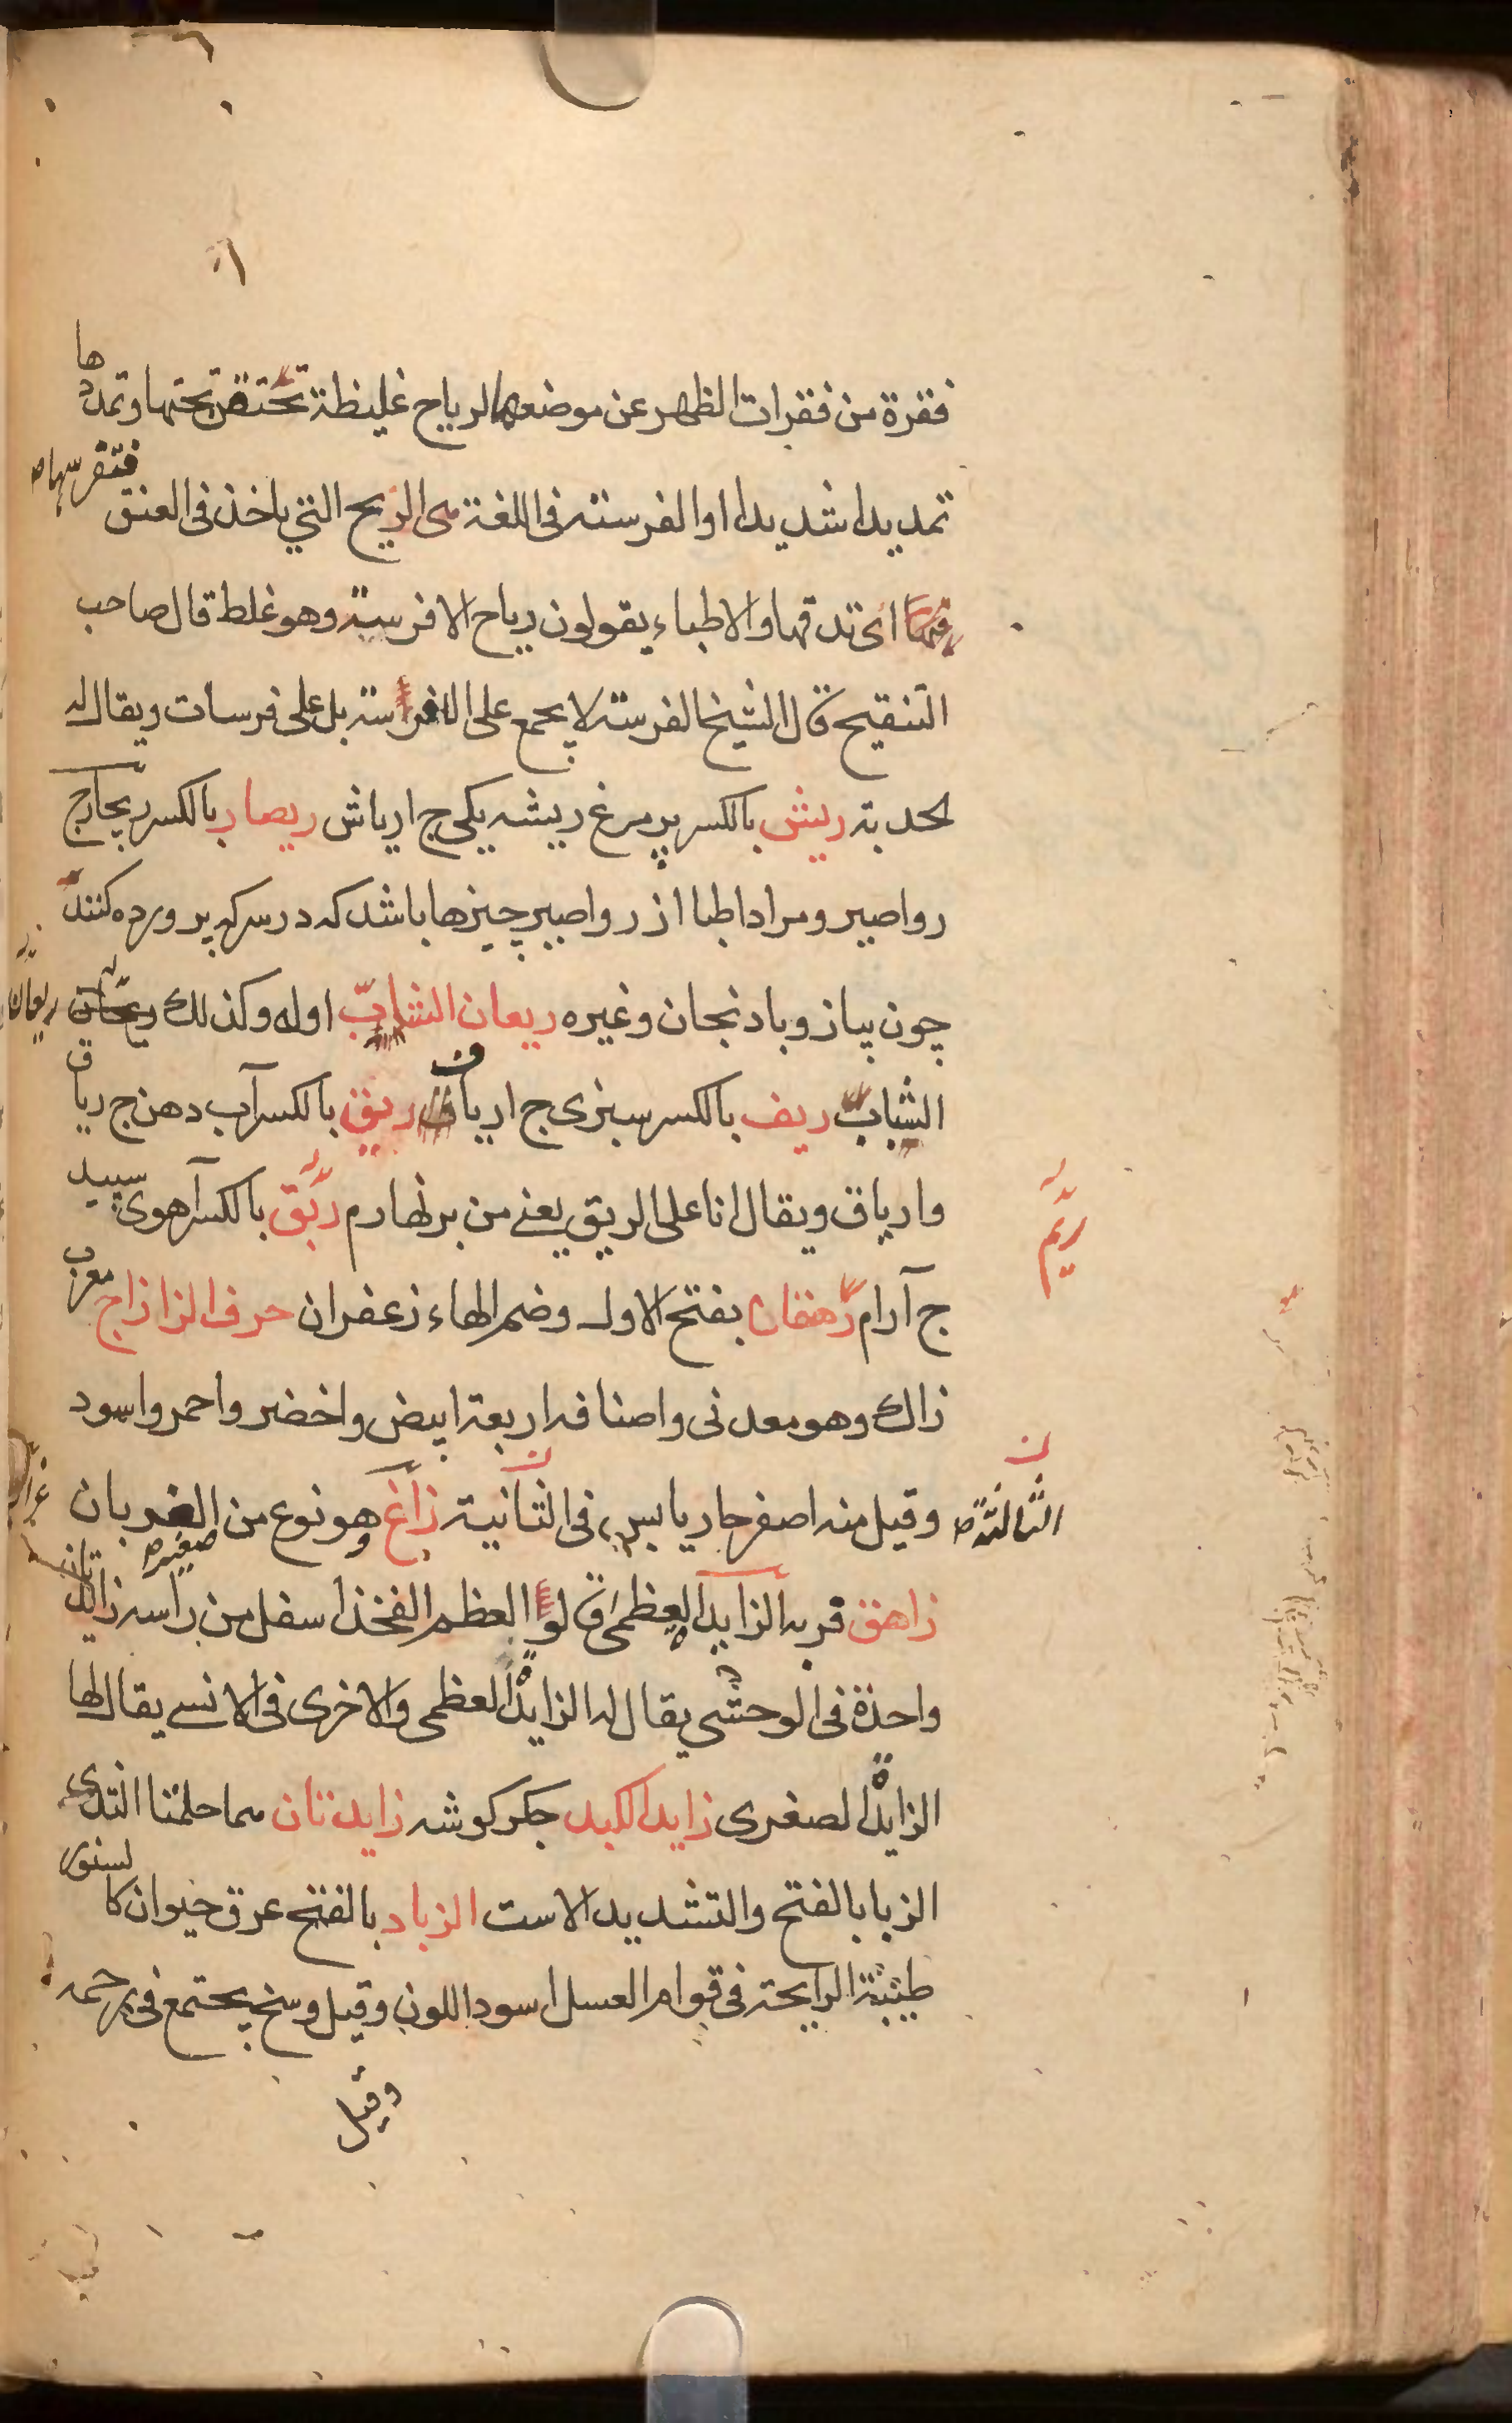 فقرة من فقرات الظهر عن موضعها لرياح غليظة تحتقن تحتها وتمددها
تمديدا شديدا او الفرسة فى اللغة هى الريح التي ياخذ فى العنق فتفرسها
اى تدقها والاطباء يقولون رياح الافرسة وهو غلط قال صاحب
التنقيح قال الشيخ الفرسة لا يجمع على الافرسة بل على فرسات ويقال له
لحدبة ريش بالكسر پر مرغ ريشه يكى ج ارياش ريصار بالكسر ريچار ج
رواصير ومراد اطبا از رواصير چيزها باشد كه در سركه پرورده كنند
چون پياز وبادنجان وغيره ريعان الشباب اوله وكذلك ريعان
الشباب ريف بالكسر سبزى ج ارياف ريق بالكسر آب دهن ج رياق
وارياق ويقال انا على الريق يعنے من بر نهارم ريم بالكسر آهوى سپيد
ريم
ج آرام رهقان بفتح الاول وضم الهاء زعفران حرف الزا زاج معرب
زاك وهو معدنى واصنافه اربعة ابيض واخضر واحمر واسود
وقيل منه اصفر حار يابس فى الثانية زاغ هو نوع من الغربان صغير
الثالثة
زاهق فربه الزايدة العظمى قالوا العظم الفخذ اسفل من راسه زايدتان
واحدة فى الوحشي يقال له الزايدة العظمى والاخرى فى الانسے يقال لها
الزايدة الصغرى زايد الكبد جكر كوشه زايدتان هما حلمتا الثدى
الزبا بالفتح والتشديد الاست الزباد بالفتح عرق حيوان كالسنور
طيبة الرايحة فى قوام العسل اسود اللون وقيل وسخ يجتمع فى
وقيل